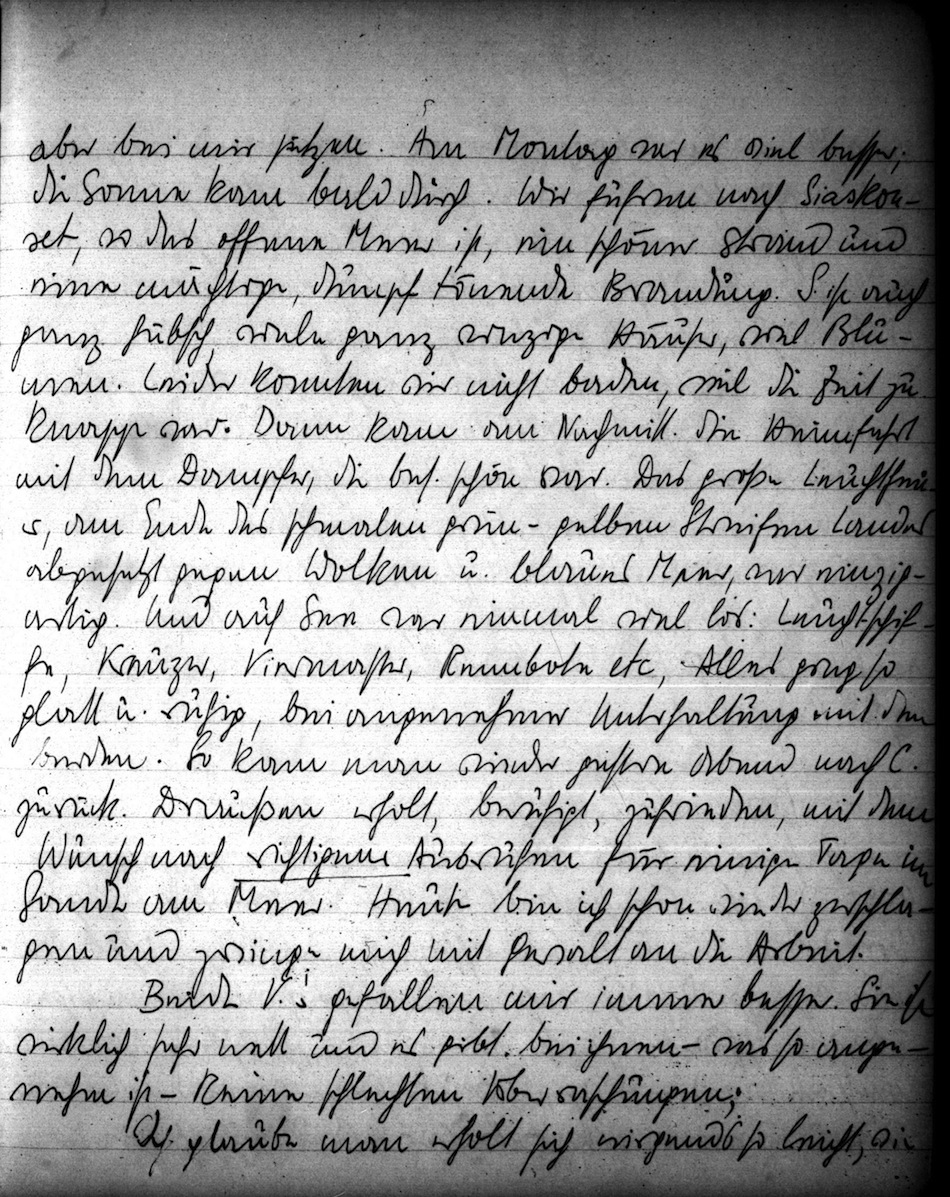 aber bei mir sitzen. Am Montag war es viel besser;
die Sonne kam bald durch. Wir fuhren nach Siaskon-
set, wo das offene Meer ist, ein schöner Strand und
eine mächtige, dumpf tönende Brandung. S. ist auch
ganz hübsch, viele ganz winzige Häuser, viel Blu-
men. Leider konnten wir nicht baden, weil die Zeit zu
knapp war. Dann kam am Nachmitt. die Heimfahrt
mit dem Dampfer, die bes. schön war. Das große Leuchtfeu-
er, am Ende des schmalen grün-gelben Streifen Landes
abgesetzt gegen Wolken u. blaues Meer, war einzig-
artig. Und auf See war einmal viel los: Leuchtschif-
fe, Kreuzer, Viermaster, Rennboote etc, Alles ging so
glatt u. ruhig, bei angenehmer Unterhaltung mit den
beiden. So kam man wieder gestern Abend nach C.
zurück. Draußen erholt, beruhigt, zufrieden, mit dem
Wunsch nach richtigem Ausruhen für einige Tage im
Sande am Meer. Heute bin ich schon wieder zerschla-
gen und zwinge mich mit Gewalt an die Arbeit.
Beide V.'s gefallen mir immer besser. Sie ist
wirklich sehr nett und es gibt bei ihnen – was so ange-
nehm ist – keine schlechten Überraschungen;
Ich glaube man erholt sich nirgends so leicht, wie